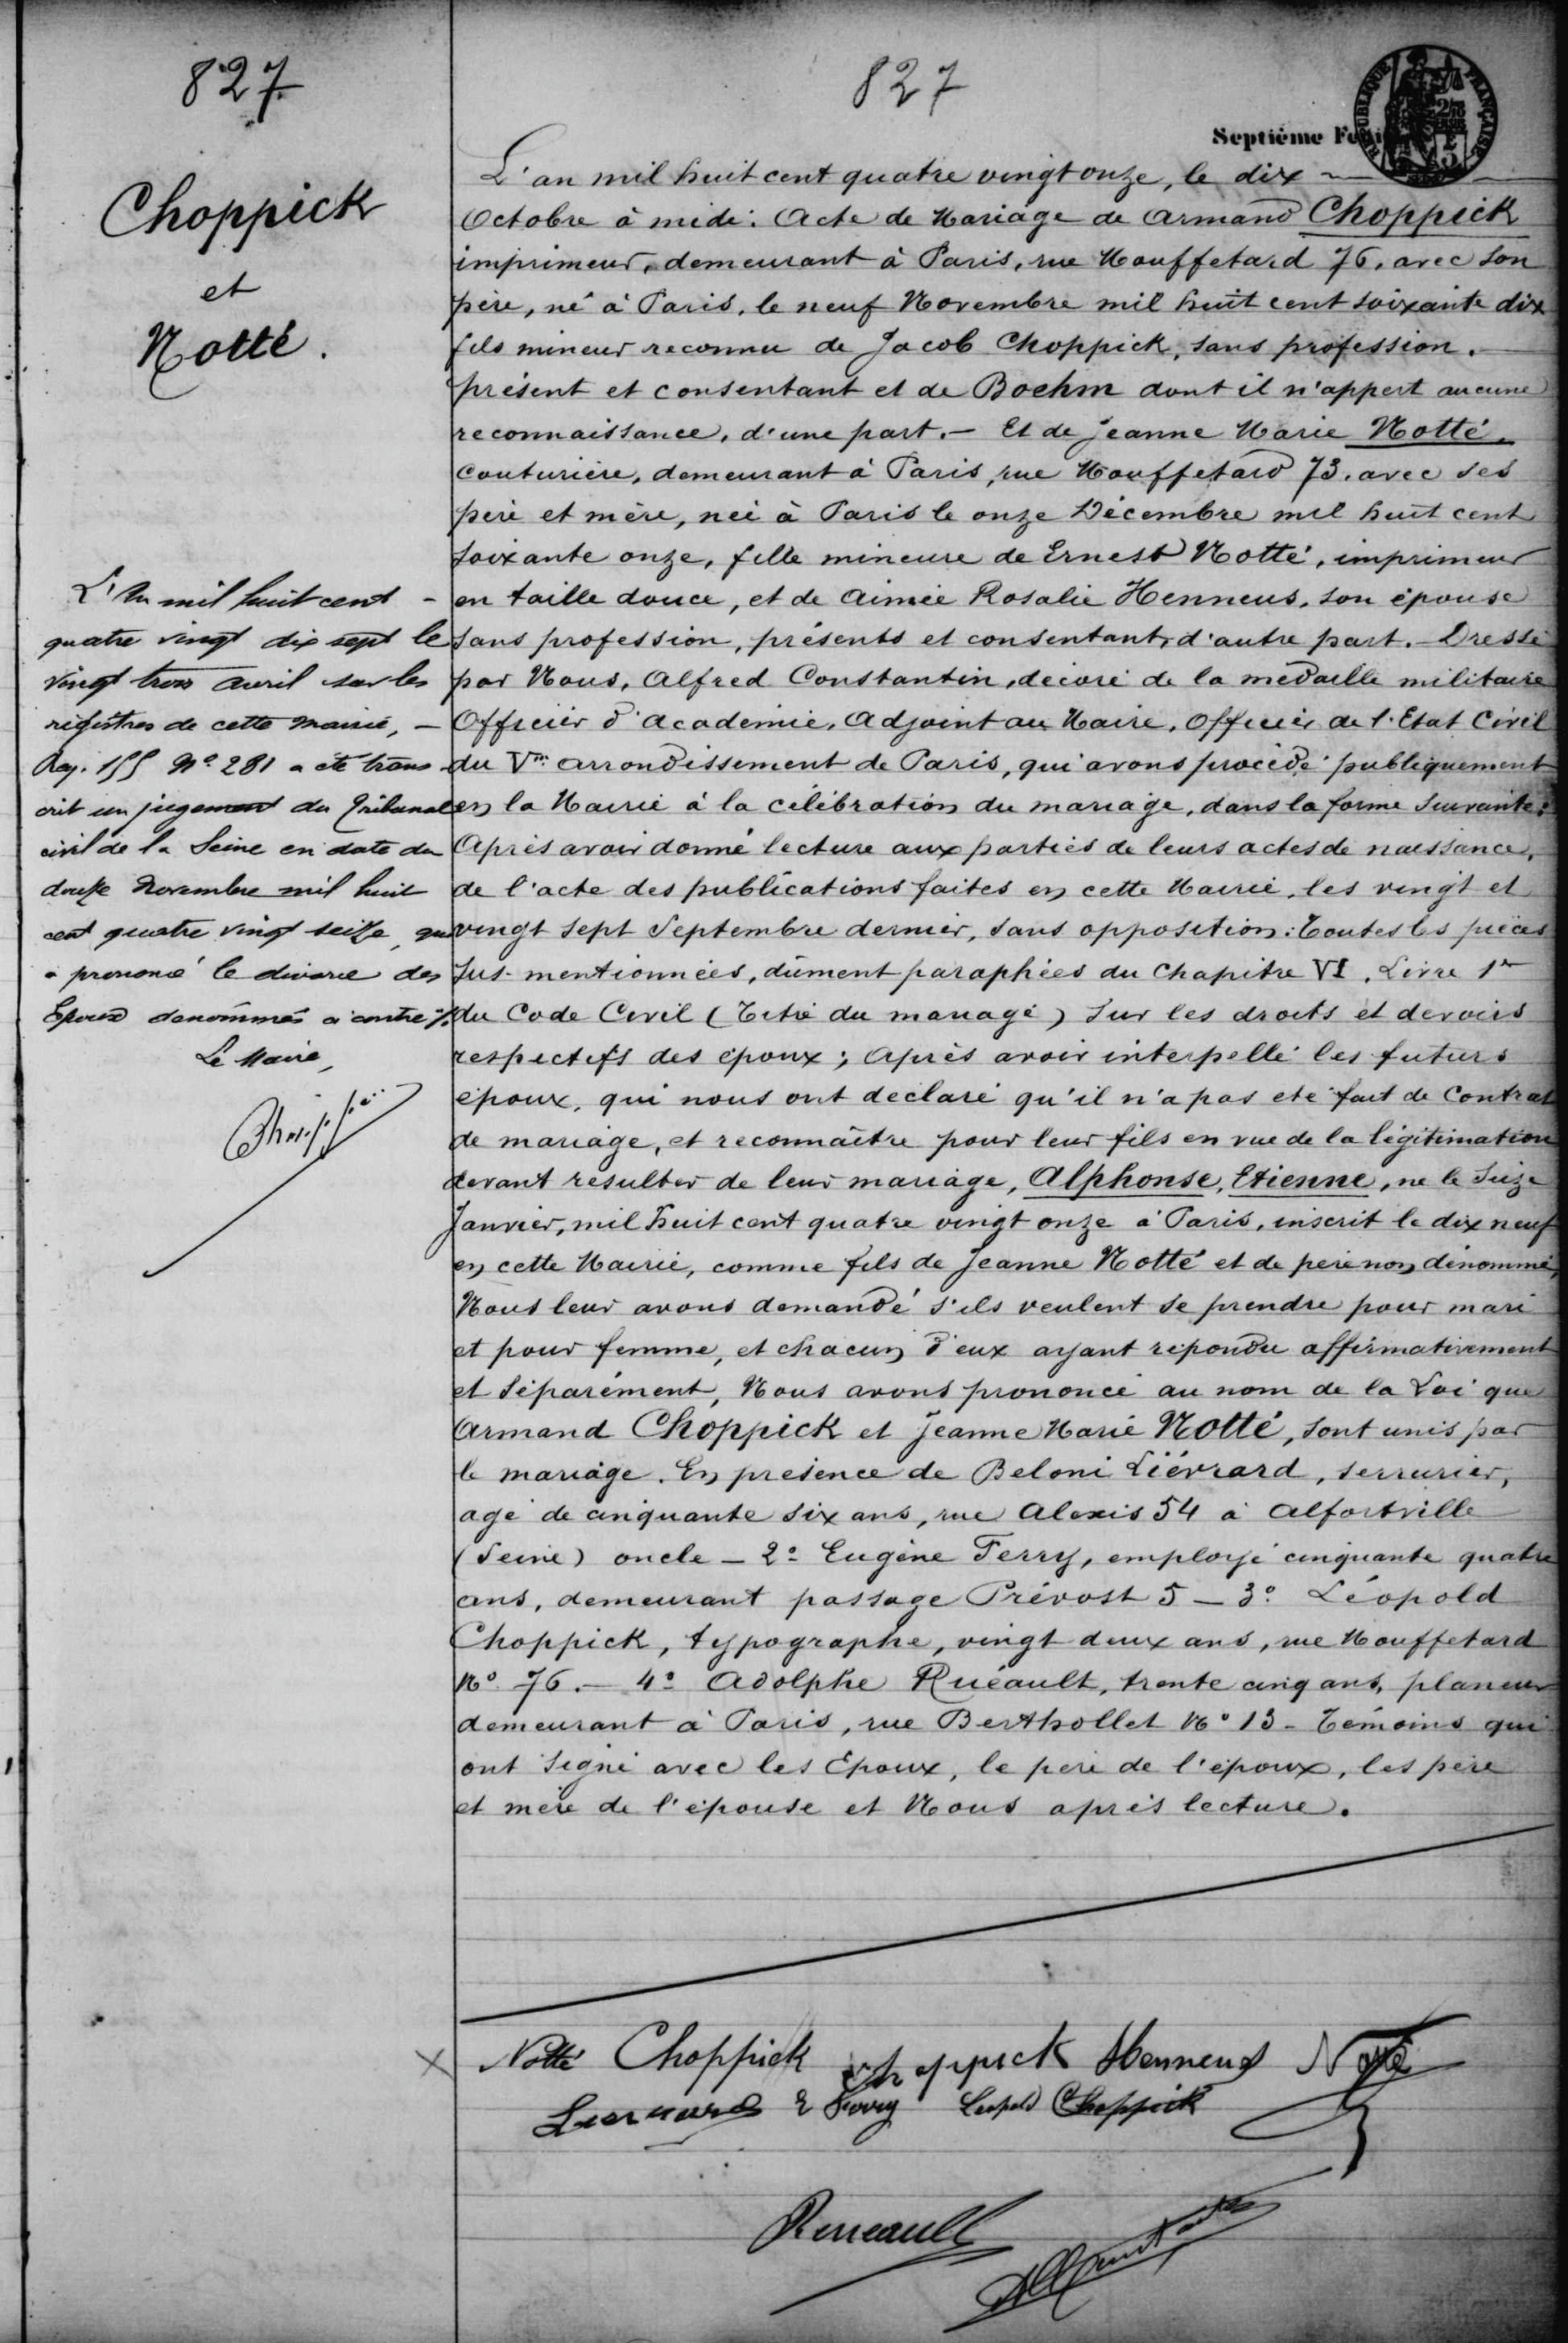 827
Choppick
et
Notté.
L'An mil huit cent -
quatre vingt dix sept le
vingt trois avril sur les
registres de cette mairie, -
Reg. 155 Nº 281 a été trans-
crit un jugement du Tribunal
civil de la Seine en date du
douze novembre mil huit
cent quatre vingt seize, qui
a prononcé le divorce des
Epoux dénommés ci contre ;/.
Le Maire,
827
Septième
RÉPUBLIQUE FRANÇAISE
L'an mil huit cent quatre vingt onze, le dix
Octobre à midi: Acte de Mariage de Armand Choppick
imprimeur, demeurant à Paris, rue Mouffetard 76, avec son
père, né à Paris, le neuf Novembre mil huit cent soixante dix
fils mineur reconnu de Jacob Choppick, sans profession.
présent et consentant et de Boehm dont il n'appert aucune
reconnaissance, d'une part. - Et de Jeanne Marie Notté.
couturière, demeurant à Paris, rue Mouffetard 73. avec ses
père et mère, née à Paris le onze Décembre mil huit cent
soixante onze, fille mineure de Ernest Notté, imprimeur
en taille douce, et de Aimée Rosalie Henneus, son épouse
sans profession, présents et consentant, d'autre part. - Dressé
par Nous, Alfred Constantin, décoré de la médaille militaire
Officier d'académie, Adjoint au Maire, Officier de l'Etat Civil
du Vme arrondissement de Paris, qui avons procédé publiquement
en la Mairie à la célébration du mariage, dans la forme suivante:
Après avoir donné lecture aux parties de leurs actes de naissance,
de l'acte des publications faites en cette Mairie, les vingt et
vingt sept Septembre dernier, sans opposition: Toutes les pièces
sus-mentionnées, dûment paraphées du Chapitre VI, Livre 1er
du Code Civil (Titre du mariage) sur les droits et devoirs
respectifs des époux; Après avoir interpellé les futurs
époux, qui nous ont déclaré qu'il n'a pas été fait de Contrat
de mariage, et reconnaître pour leur fils en vue de la légitimation
devant résulter de leur mariage, Alphonse, Etienne, né le Seize
Janvier, mil huit cent quatre vingt onze à Paris, inscrit le dix neuf
en cette Mairie, comme fils de Jeanne Notté et de père non dénommé,
Nous leur avons demandé s'ils veulent se prendre pour mari
et pour femme, et chacun d'eux ayant répondu affirmativement
et séparément, Nous avons prononcé au nom de la Loi que
Armand Choppick et Jeanne Marie Notté, sont unis par
le mariage. En présence de Beloni Liévrard, serrurier,
agé de cinquante six ans, rue Alexis 54 à Alfortville
(Seine) oncle - 2º Eugène Ferry, employé cinquante quatre
ans, demeurant passage Prévost 5 - 3º Léopold
Choppick, typographe, vingt deux ans, rue Mouffetard
Nº 76. - 4º Adolphe Ruéault, trente cinq ans, planeur
demeurant à Paris, rue Berthollet Nº 13 - Témoins qui
ont signé avec les Epoux, le père de l'époux, les père
et mère de l'épouse et Nous après lecture.
Notté Choppick Choppick Henneus Notté
Lievrard E Ferry Leopold Choppick
Rueault